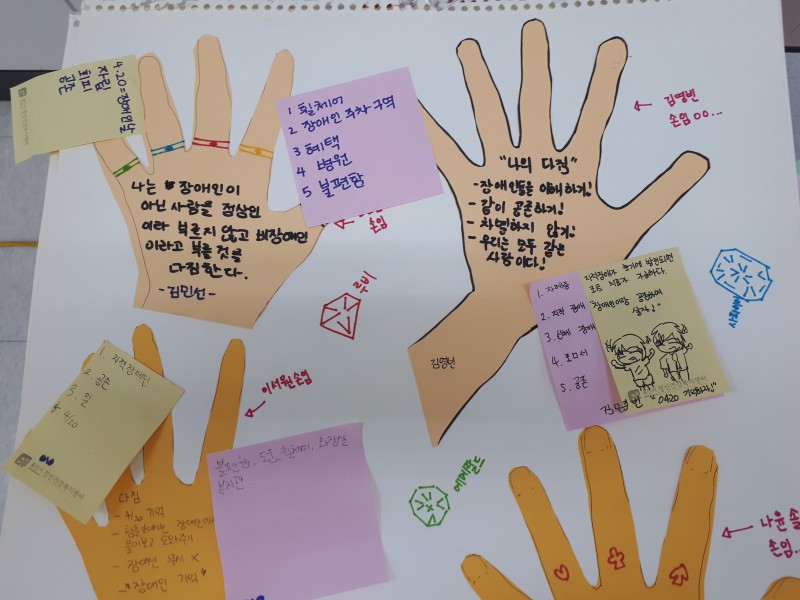 4.20=장애인날
자립
회피
공존
1 휠체어
2 장애인 주차 구역
3 혜택
4 병원
5 불편함
나는 장애인이
아닌 사람을 정상인
이라 부르지 않고 비장애인
이라고 부를 것을
다짐한다.
-김민선-
손임
루비
"나의 다짐"
- 장애인들을 이해하기!
- 같이 공존하기!
- 차별하지 않기!
- 우리는 모두 같은
사람이다!
김영빈
손임 00...
김영빈
1. 자폐증
2. 지적 장애
3. 신체 장애
4. 호미서
5. 공존
지적장애가 조기에 발견되면
조금 치료가 가능하다.
"장애인이랑 공존하여
살자!"
0420 기억하자!"
이서원손임
1. 지적장애인
2. 공존
3. 일
4. 4/20
다짐
- 4/20 기억
- 힘들어하는 장애인
물어보고 도와주기
- 장애인 무시 X
- "장애인 기억"
불편함, 도움, 휠체어, 화장실
복지관...
에메랄드
나윤솔
손임...